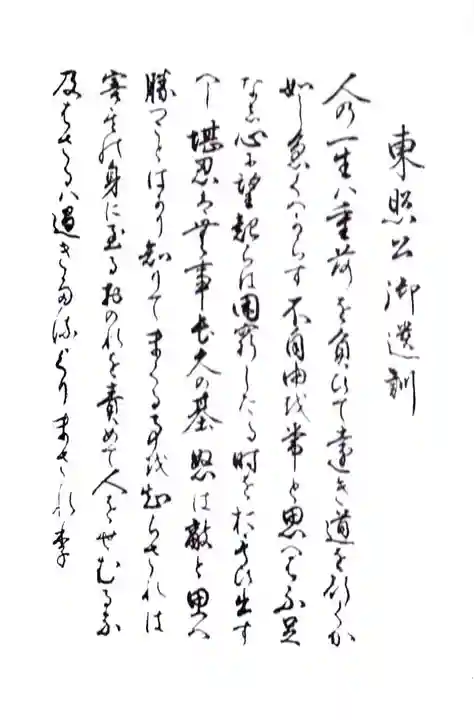 東照公御遺訓
人の一生ハ重荷を負ひて遠き道を行くか
如し急くへからす不自由を常と思へは不足
なし心に望起らは困窮したる時を於もひ出す
へし堪忍は無事長久の基怒は敵と思へ
勝つことはかり知りてまくる事を知らされは
害其の身に至る於のれを責めて人をせむるな
及はさるハ過きたるよりまされり